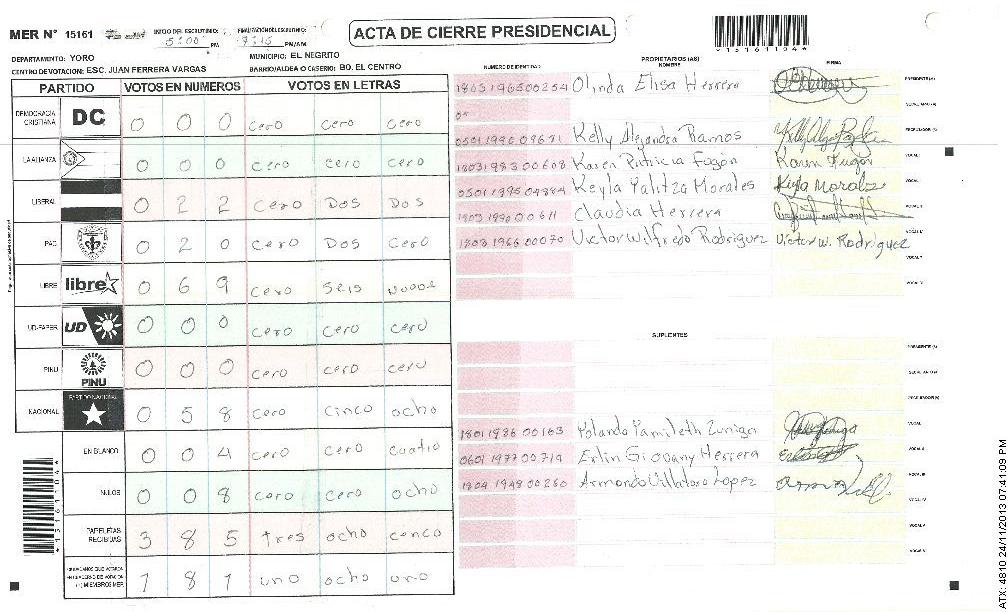 MER N° 15161
INICIO DEL ESCRUTINIO: 5:00 PM
FINALIZACION DEL ESCRUTINIO: 7:15 PM/AM
ACTA DE CIERRE PRESIDENCIAL
*151611044*
DEPARTAMENTO: YORO
MUNICIPIO: EL NEGRITO
CENTRO DE VOTACION: ESC. JUAN FERRERA VARGAS
BARRIO/ALDEA O CASERIO: BO. EL CENTRO
PARTIDO VOTOS EN NUMEROS VOTOS EN LETRAS
DEMOCRACIA CRISTIANA DC 0 0 0 cero cero cero
LA ALIANZA 0 0 0 cero cero cero
LIBERAL 0 2 2 cero Dos Dos
PAC 0 2 0 cero Dos cero
LIBRE libre 0 6 9 cero seis
UD-FAPER UD 0 0 0 cero cero cero
PINU PINU 0 0 0 cero cero cero
NACIONAL PARTIDO NACIONAL 0 5 8 cero cinco ocho
EN BLANCO 0 0 4 cero cero cuatro
NULOS 0 0 8 cero cero ocho
PAPELETAS RECIBIDAS 3 8 5 tres ocho cenco
CIUDADANOS QUE VOTARON EN CUADERNO DE VOTACION (+) MIEMBROS MER 1 8 1 uno ocho uno
*151611044*
PROPIETARIOS (AS)
NUMERO DE IDENTIDAD NOMBRE FIRMA
1803196500254 Olinda Elisa Herrera PRESIDENTE (A)
SECRETARIO (A)
0501199009671 Kelly Alejandra Ramos ESCRUTADOR (A)
1803198300608 Karen Patricia Fugón Karen Fugon VOCAL I
0501199504884 Keyla Yalitza Morales Keyla Morales VOCAL
1803199000611 Claudia Herrera VOCAL
1803196600070 Victor Wilfredo Rodriguez Victor W. Rodriguez VOCAL
VOCAL
VOCAL
SUPLENTES
PRESIDENTE (A)
SECRETARIO (A)
ESCRUTADOR (A)
1801198600163 Yolanda Yamileth Zuniga VOCAL
0601197700714 Erlin Giovany Herrera VOCAL
1804194800260 Armando Villatoro Lopez VOCAL
VOCAL
VOCAL
VOCAL
ATX: 4810 24/11/2013 07:41:09 PM